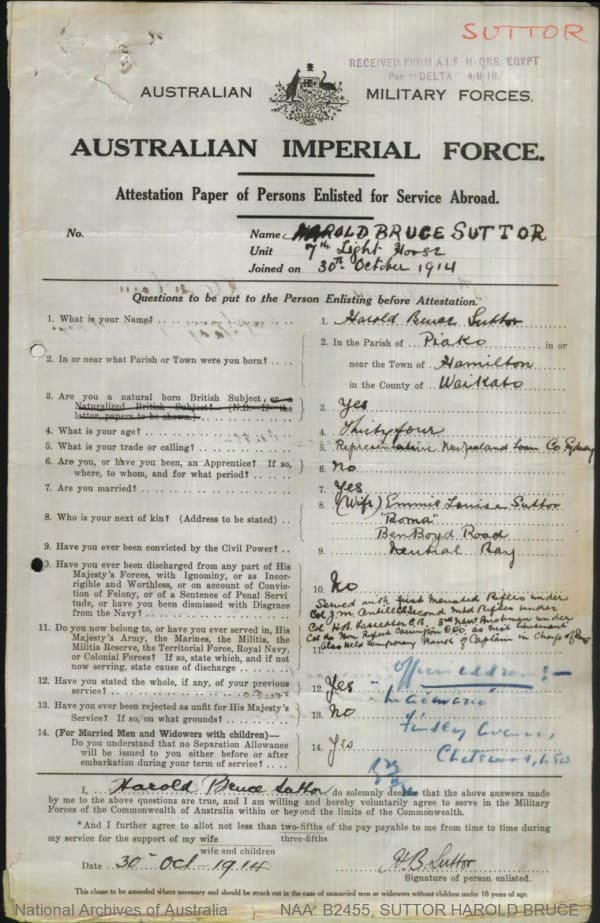 SUTTOR
RECEIVED FROM A.I.F. H-QRS. EGYPT
Per "DELTA" 4/9/19.
AUSTRALIAN MILITARY FORCES.
AUSTRALIAN IMPERIAL FORCE.
Attestation Paper of Persons Enlisted for Service Abroad.
No. Name HAROLD BRUCE SUTTOR
Unit 7th Light Horse
Joined on 30th October 1914
Questions to be put to the Person Enlisting before Attestation.
1. What is your Name? 1. Harold Bruce Suttor
2. In or near what Parish or Town were you born? 2. In the Parish of Piako in or
near the Town of Hamilton
in the County of Waikato
3. Are you a natural born British Subject, or a
Naturalized British Subject? (N.B. If the
latter, papers to be shown.) 3. Yes
4. What is your age? 4. Thirty four
5. What is your trade or calling? 5. Representative New Zealand Loan Co Sydney
6. Are you, or have you been, an Apprentice? If so,
where, to whom, and for what period? 6. No
7. Are you married? 7. Yes
8. Who is your next of kin? (Address to be stated) 8. (Wife) Emmie Louisa Suttor
"Roma"
Ben Boyd Road
9. Have you ever been convicted by the Civil Power? 9. Neutral Bay
10. Have you ever been discharged from any part of His
Majesty's Forces, with Ignominy, or as Incor-
rigible and Worthless, or on account of Convic-
tion of Felony, or of a Sentence of Penal Servi-
tude, or have you been dismissed with Disgrace
from the Navy? 10. No
Served with first Mounted Rifles under
Col J M Antill CB second Mtd Rifles under
Col H B Lassetter C.B. 3rd NSW Bushmen under
11. Do you now belong to, or have you ever served in, His
Majesty's Army, the Marines, the Militia, the
Militia Reserve, the Territorial Force, Royal Navy,
or Colonial Forces? If so, state which, and if not
now serving, state cause of discharge 11.
Col the Hon Rupert Carington DSO as Lieutenant
Also Held temporary Rank of Captain in charge of
12. Have you stated the whole, if any, of your previous
service? 12. Yes
13. Have you ever been rejected as unfit for His Majesty's
Service? If so, on what grounds? 13. No
14. (For Married Men and Widowers with children)—
Do you understand that no Separation Allowance
will be issued to you either before or after
embarkation during your term of service? 14. Yes
Chatswood, NSW
I, Harold Bruce Suttor do solemnly declare that the above answers made
by me to the above questions are true, and I am willing and hereby voluntarily agree to serve in the Military
Forces of the Commonwealth of Australia within or beyond the limits of the Commonwealth.
*And I further agree to allot not less than two-fifths of the pay payable to me from time to time during
three-fifths
my service for the support of my wife
wife and children
Date 30th Oct 1914 H B Suttor
Signature of person enlisted.
This clause to be amended where necessary and should be struck out in the case of unmarried men or widowers without children under 18 years of age.
National Archives of Australia NAA: B2455, SUTTOR HAROLD BRUCE